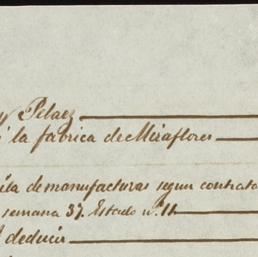 y Pelaez
á la fabrica de Miraflores
de manufacturas segun contrata
semana 37. Estado nº. 11
deducir